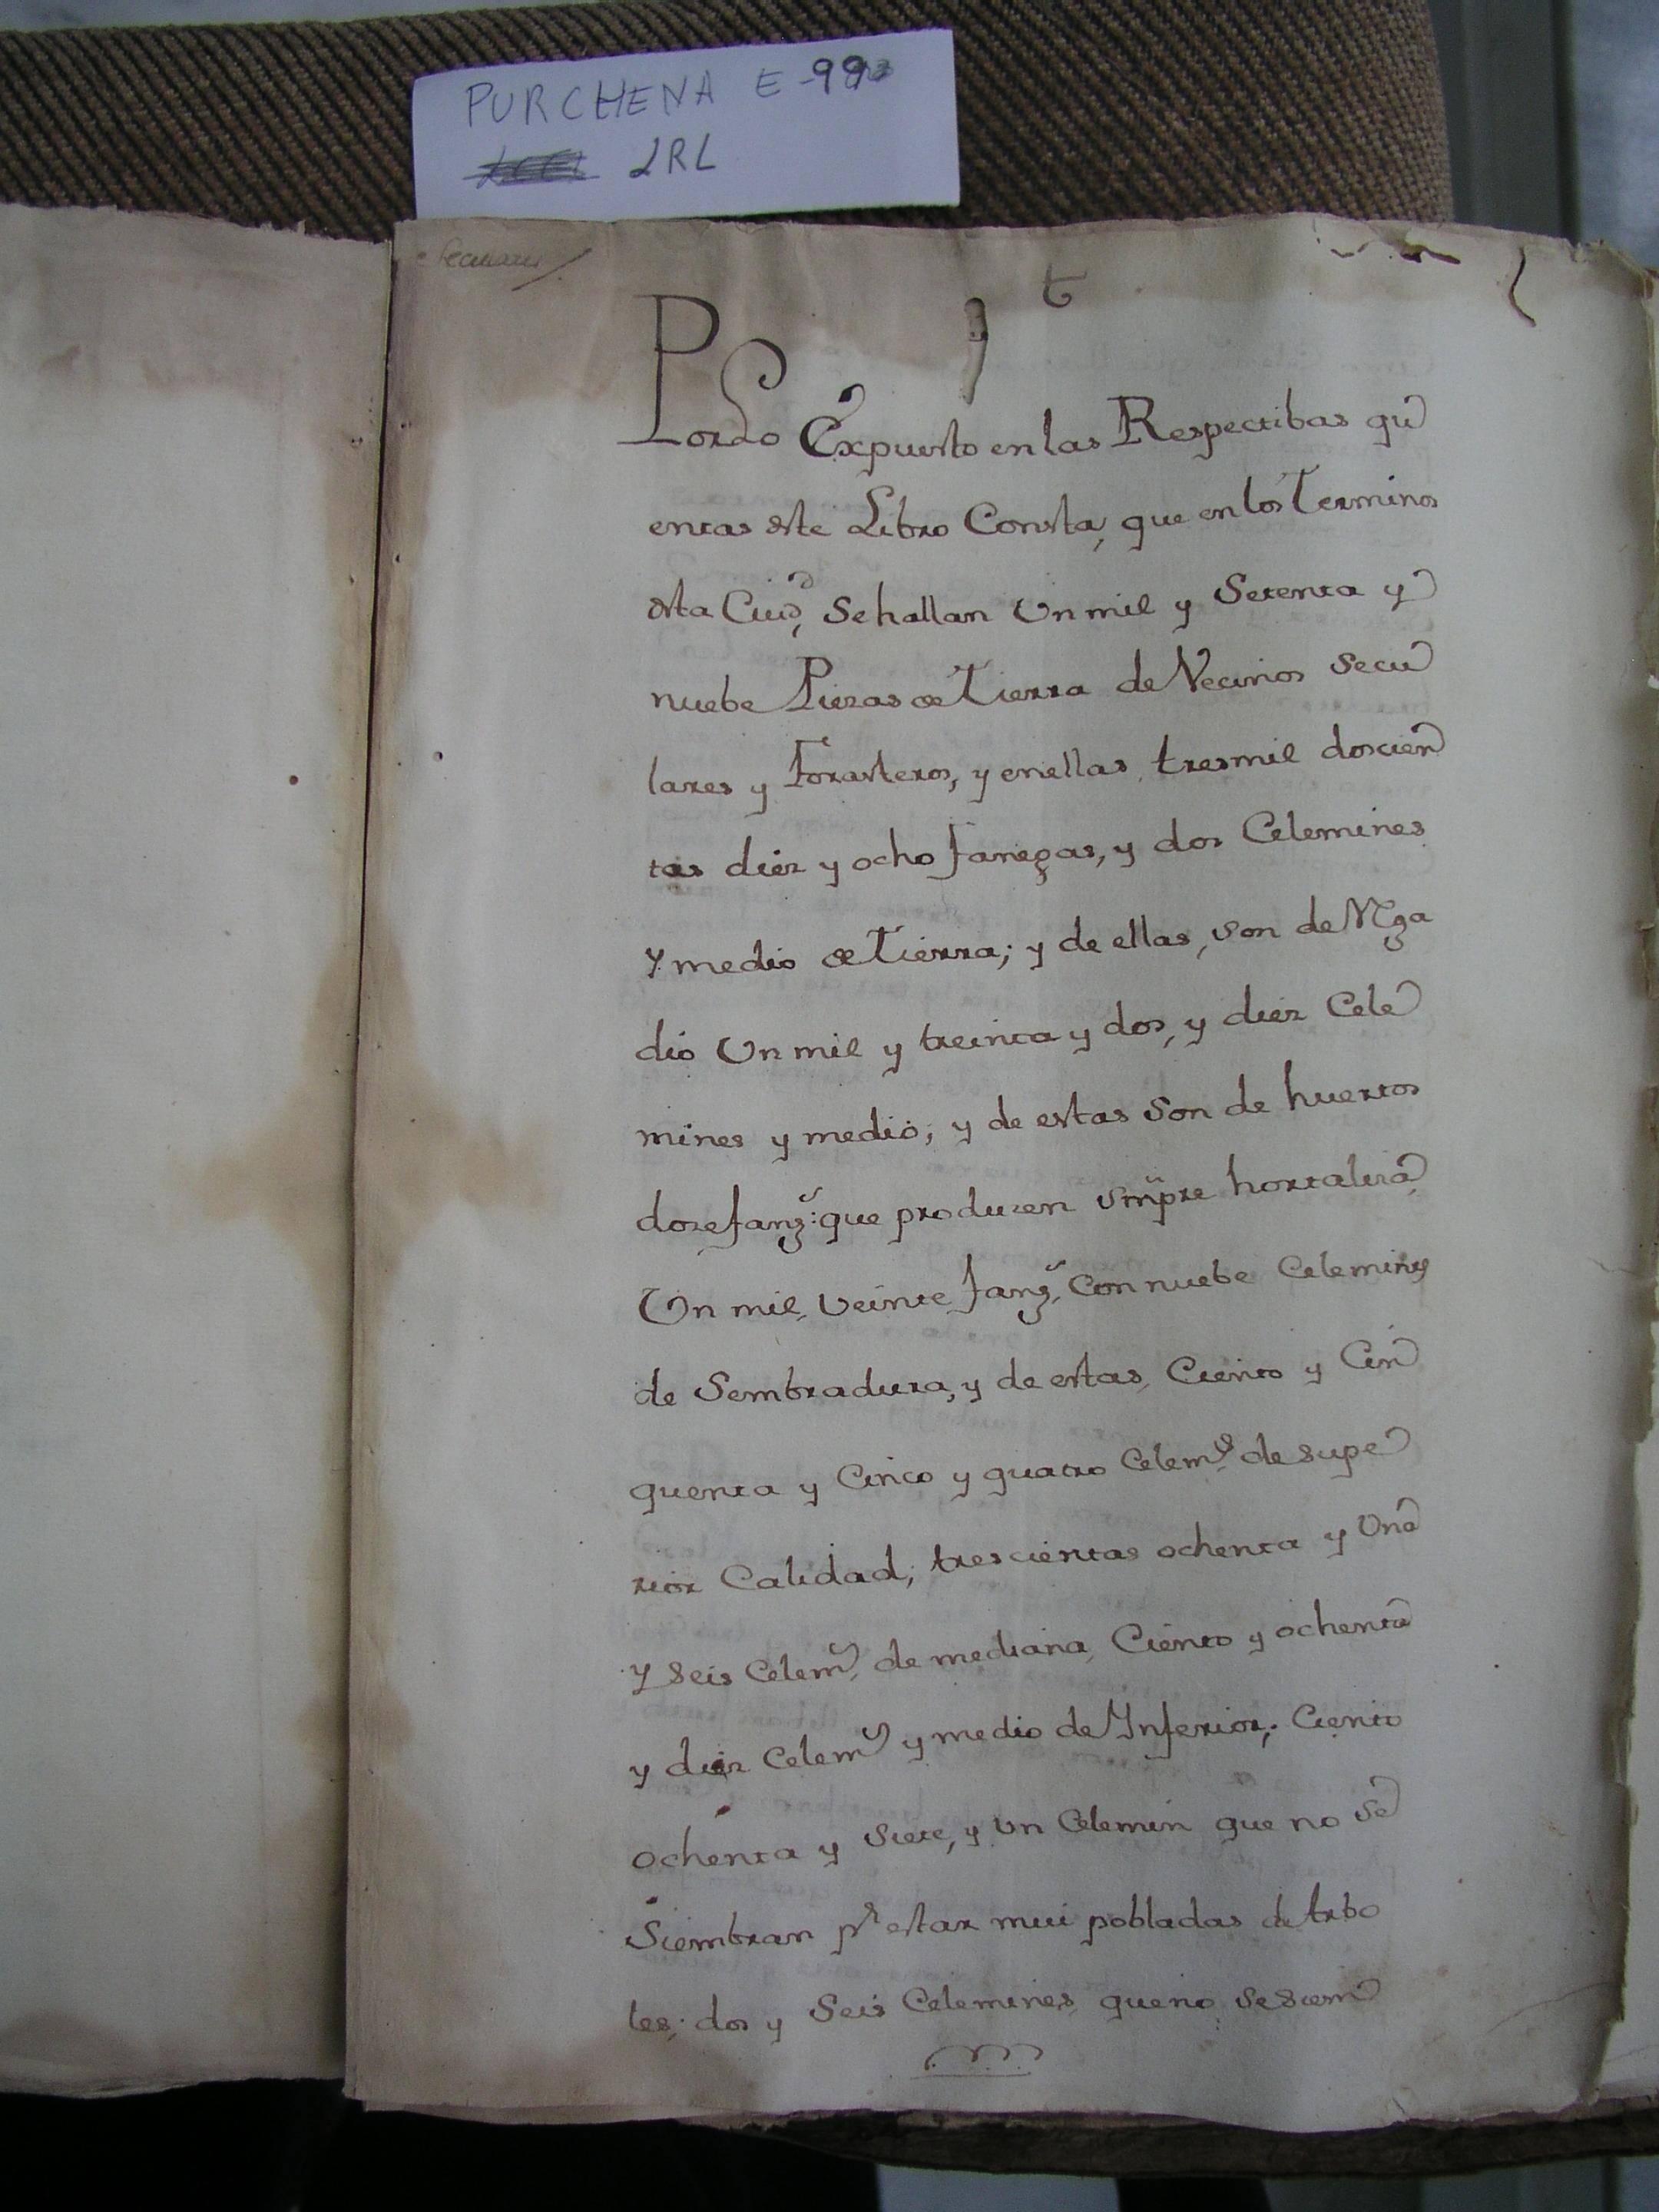 PURCHENA E-99
LRL
t
Por Lo Expuesto en las Respectibas qu
entas deste Libro Consta, que en los Terminos
desta Ciud, se hallan Un mil y Setenta y
nuebe Piezas de Tierra de Vecinos Secu
lares y Forasteros, y en ellas, tres mil doscien
tas diez y ocho fanegas, y dos Celemines
y medio de Tierra; y de ellas, son de Rega
dio Un mil y treinta y dos, y diez Cele
mines y medio; y de estas son de huertos
doze fang.s que produzen smpre hortaliza,
Un mil, veinte fang.s, con nuebe Celemines
de Sembradura, y de estas, Ciento y Cin
quenta y Cinco y quatro Celem.s de supe
rior Calidad; trescientas ochenta y Una
y Seis Celem.s, de mediana, Ciento y ochenta
y diez Celem.s y medio de Ynferior; Ciento
ochenta y Siete, y Un Celemin que no se
Siembran p.r estar mui pobladas de Arbo
les; dos y Seis Celemines, que no se Siem